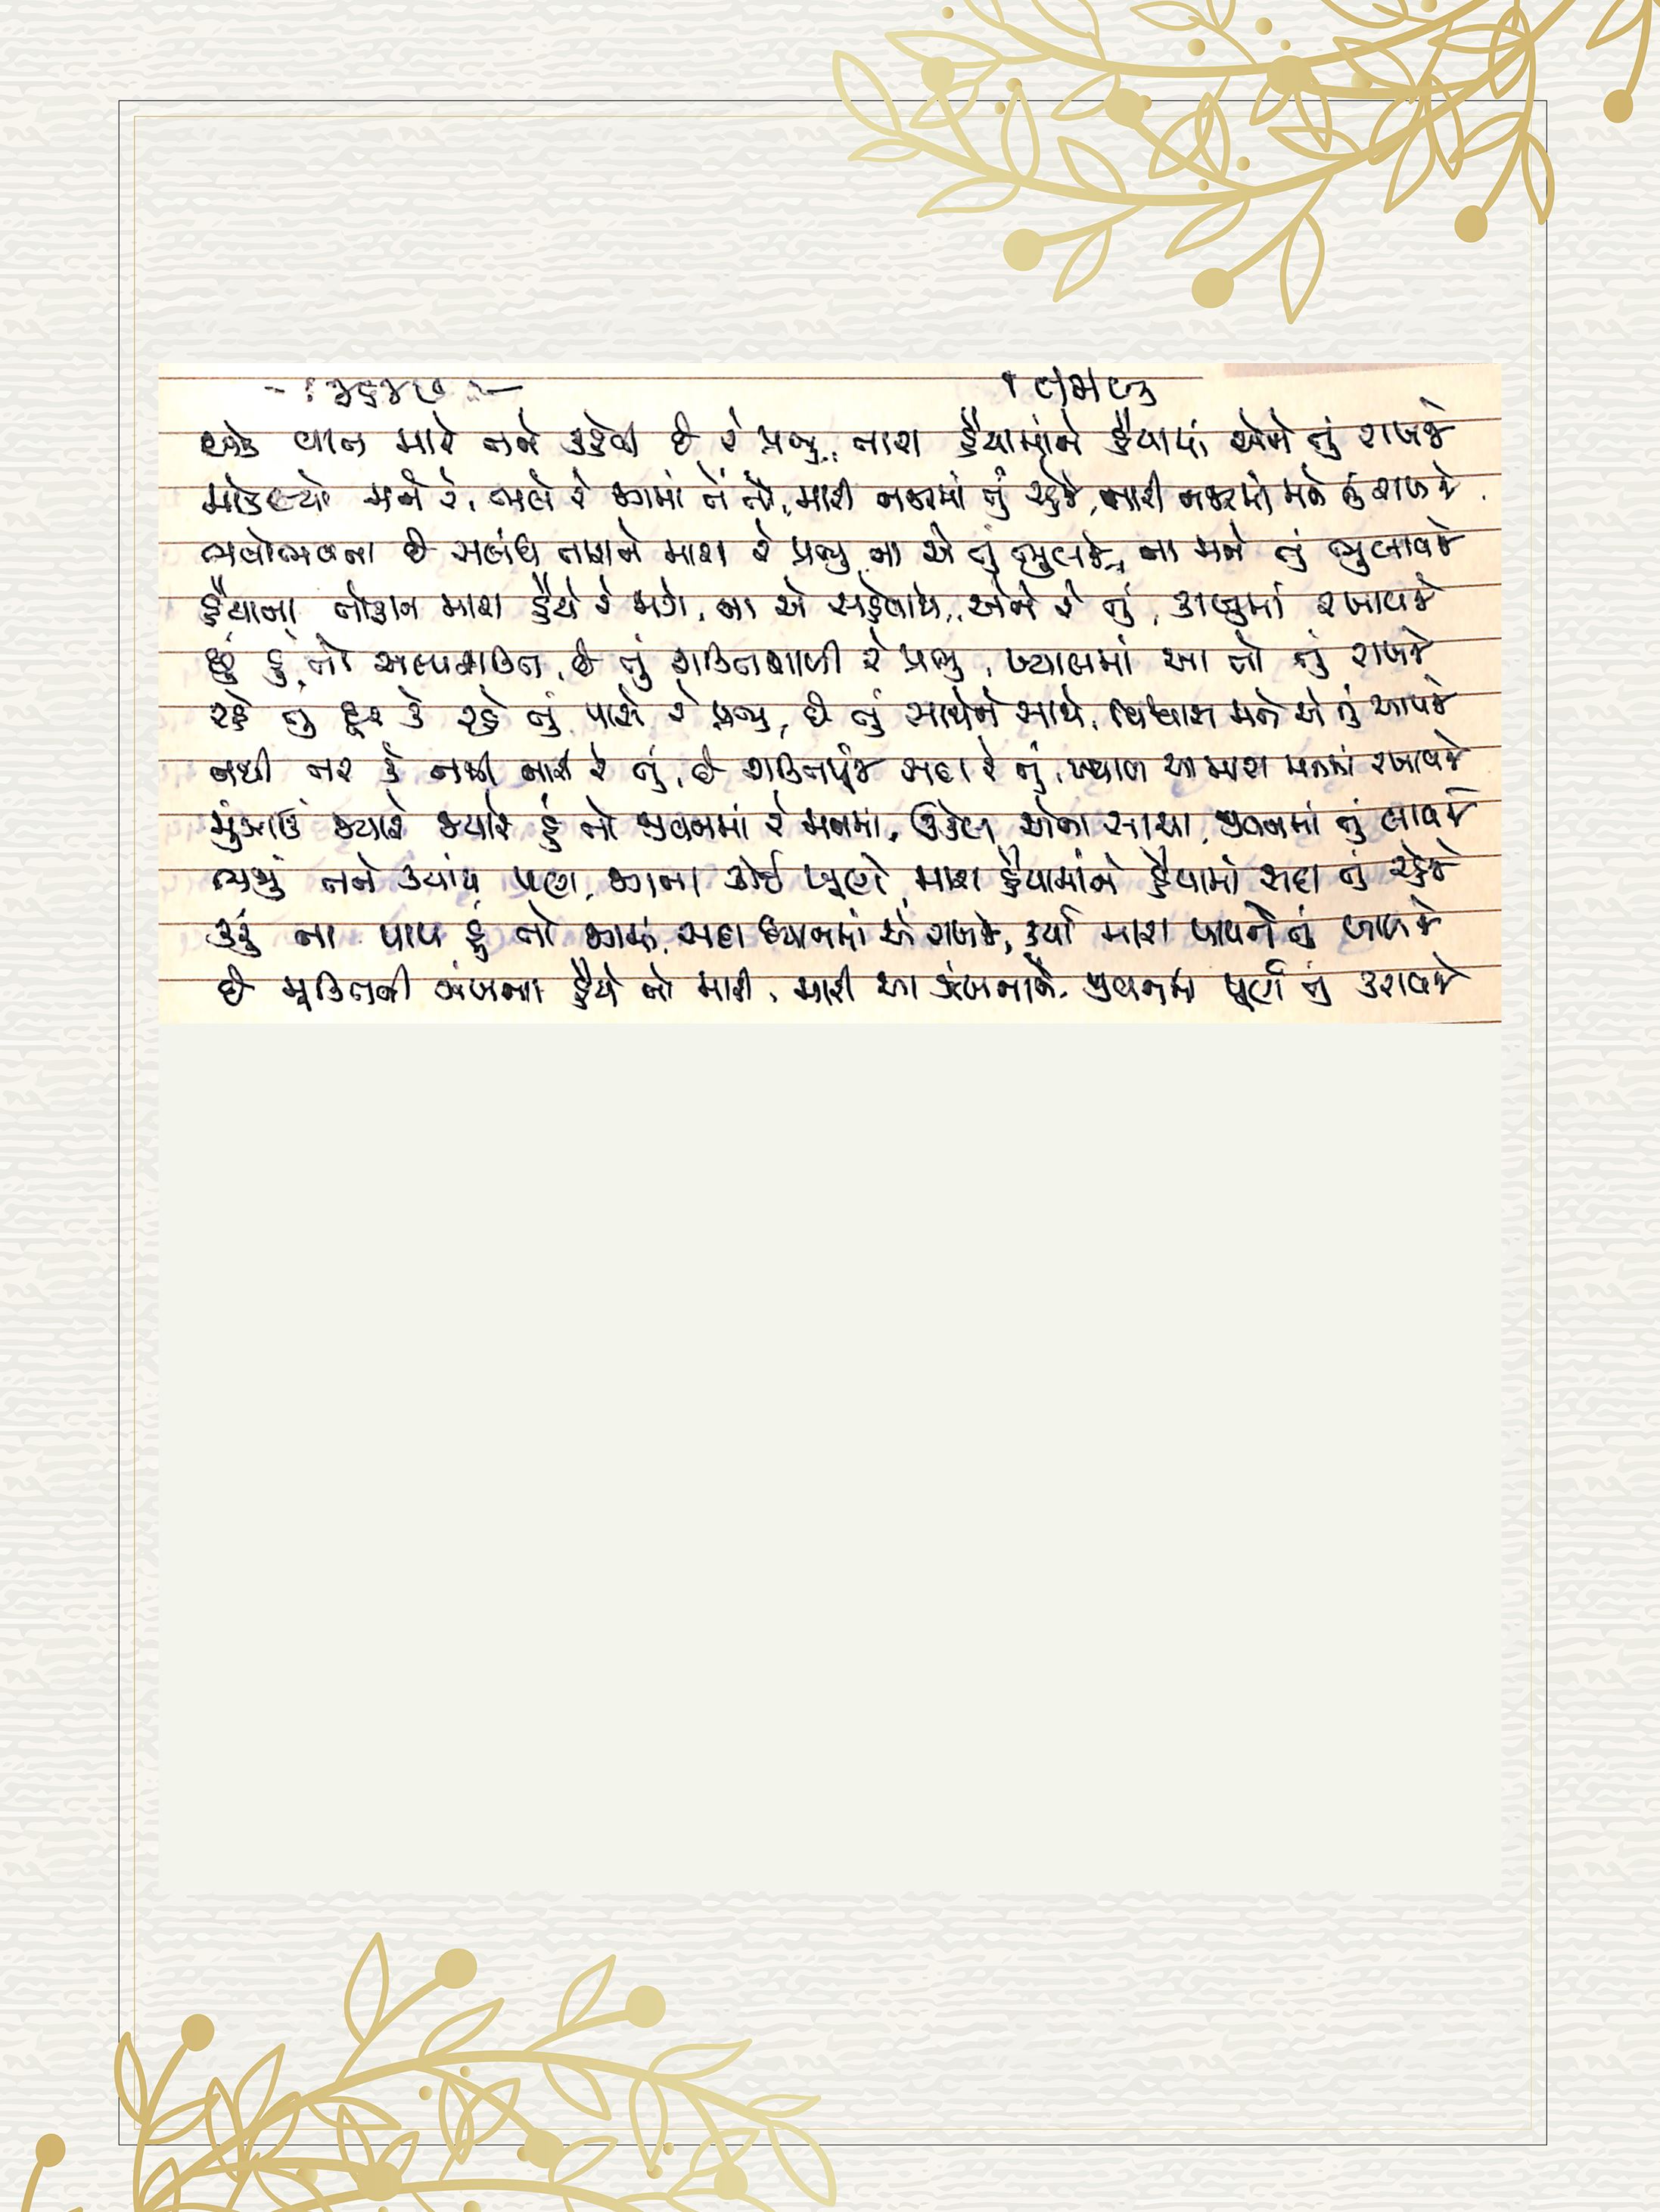 એક વાત મારે તને કહેવી છે રે પ્રભુ, તારા હૈયામાંને હૈયામાં એને તું રાખજે
મોકલ્યો મને રે, ભલે રે જગમાં તેં તો, મારી નજરમાં તું રહેજે, તારી નજરમાં મને તું રાખજે
ભવોભવના છે સબંધ તારાને મારા રે પ્રભુ, ના એ તું ભુલજે, ના મને તું ભુલાવજે
હૈયાના તોફાન મારા હૈયે રે મળે, ના એ સહેવાયે, એને રે તું, કાબુમાં રખાવજે
છું હું તો અલ્પશક્તિ, છે તું શક્તિશાળી રે પ્રભુ, ખ્યાલમાં આ તો તું રાખજે
રહે તુ દૂર કે રહે તું પાસે રે પ્રભુ, છે તું સાથેને સાથે, વિશ્વાસ મને એ તું આપજે
નથી નર કે નથી નારી રે તું, છે શક્તિપૂંજ સદા રે તું, ખ્યાલ આ મારા મનમાં રખાવજે
મુંઝાઉં ક્યારે ક્યારે હું તો જીવનમાં રે મનમાં, ઉકેલ એના સાચા, જીવનમાં તું લાવજે
ભજું તને ક્યાંય પણ, જગના કોઈ ખૂણે, મારા હૈયામાંને હૈયામાં સદા તું રહેજે
કરું ના પાપ હું તો જગમાં, સદા ધ્યાનમાં એ રાખજે, કર્યા મારા પાપને તું બાળજે
છે મૂક્તિની ઝંખના હૈયે તો મારી, મારી આ ઝંખનાને, જીવનમાં પૂર્ણ તું કરાવજે